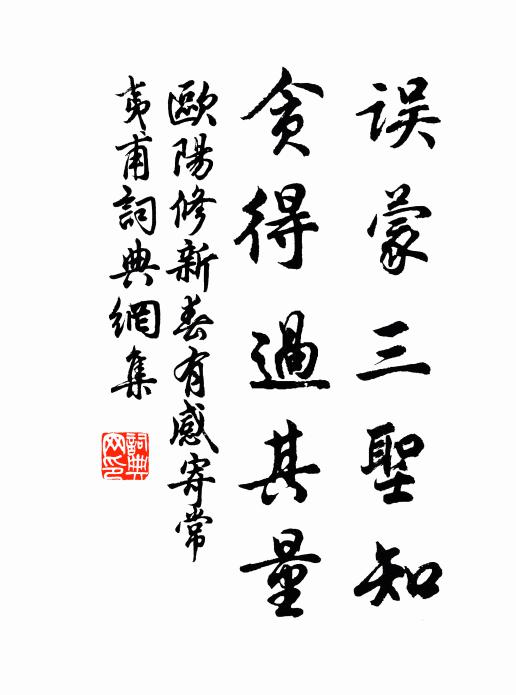 误蒙三聖知
貪得過其量
歐陽修新春有感寄常
夷甫詞典網集
詞典网印